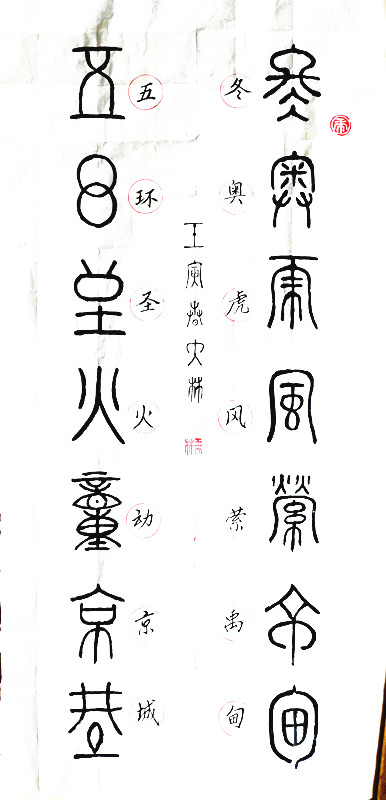 冬奥虎风萦禹甸
冬奥虎风萦禹甸
壬寅春
五环圣火动京城
五环圣火动京城